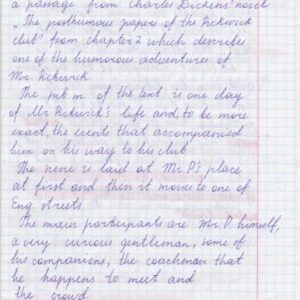 a passage from Charles Dickens' novel
" The posthumous papers of the Pickwick
club" from chapter 2 which describes
one of the humorous adventures of
Mr. Pickwick
The sub m of the text is one day
of Mr Pickwick's life and, to be more
exact, the events that accompanied
him on his way to his club
The scene is laid at Mr. P's place
at first and then it moves to one of
Eng streets.
The main participants are Mr. P. himself,
a very curious gentleman, some of
his companions, the coachman that
he happens to meet and
the crowd